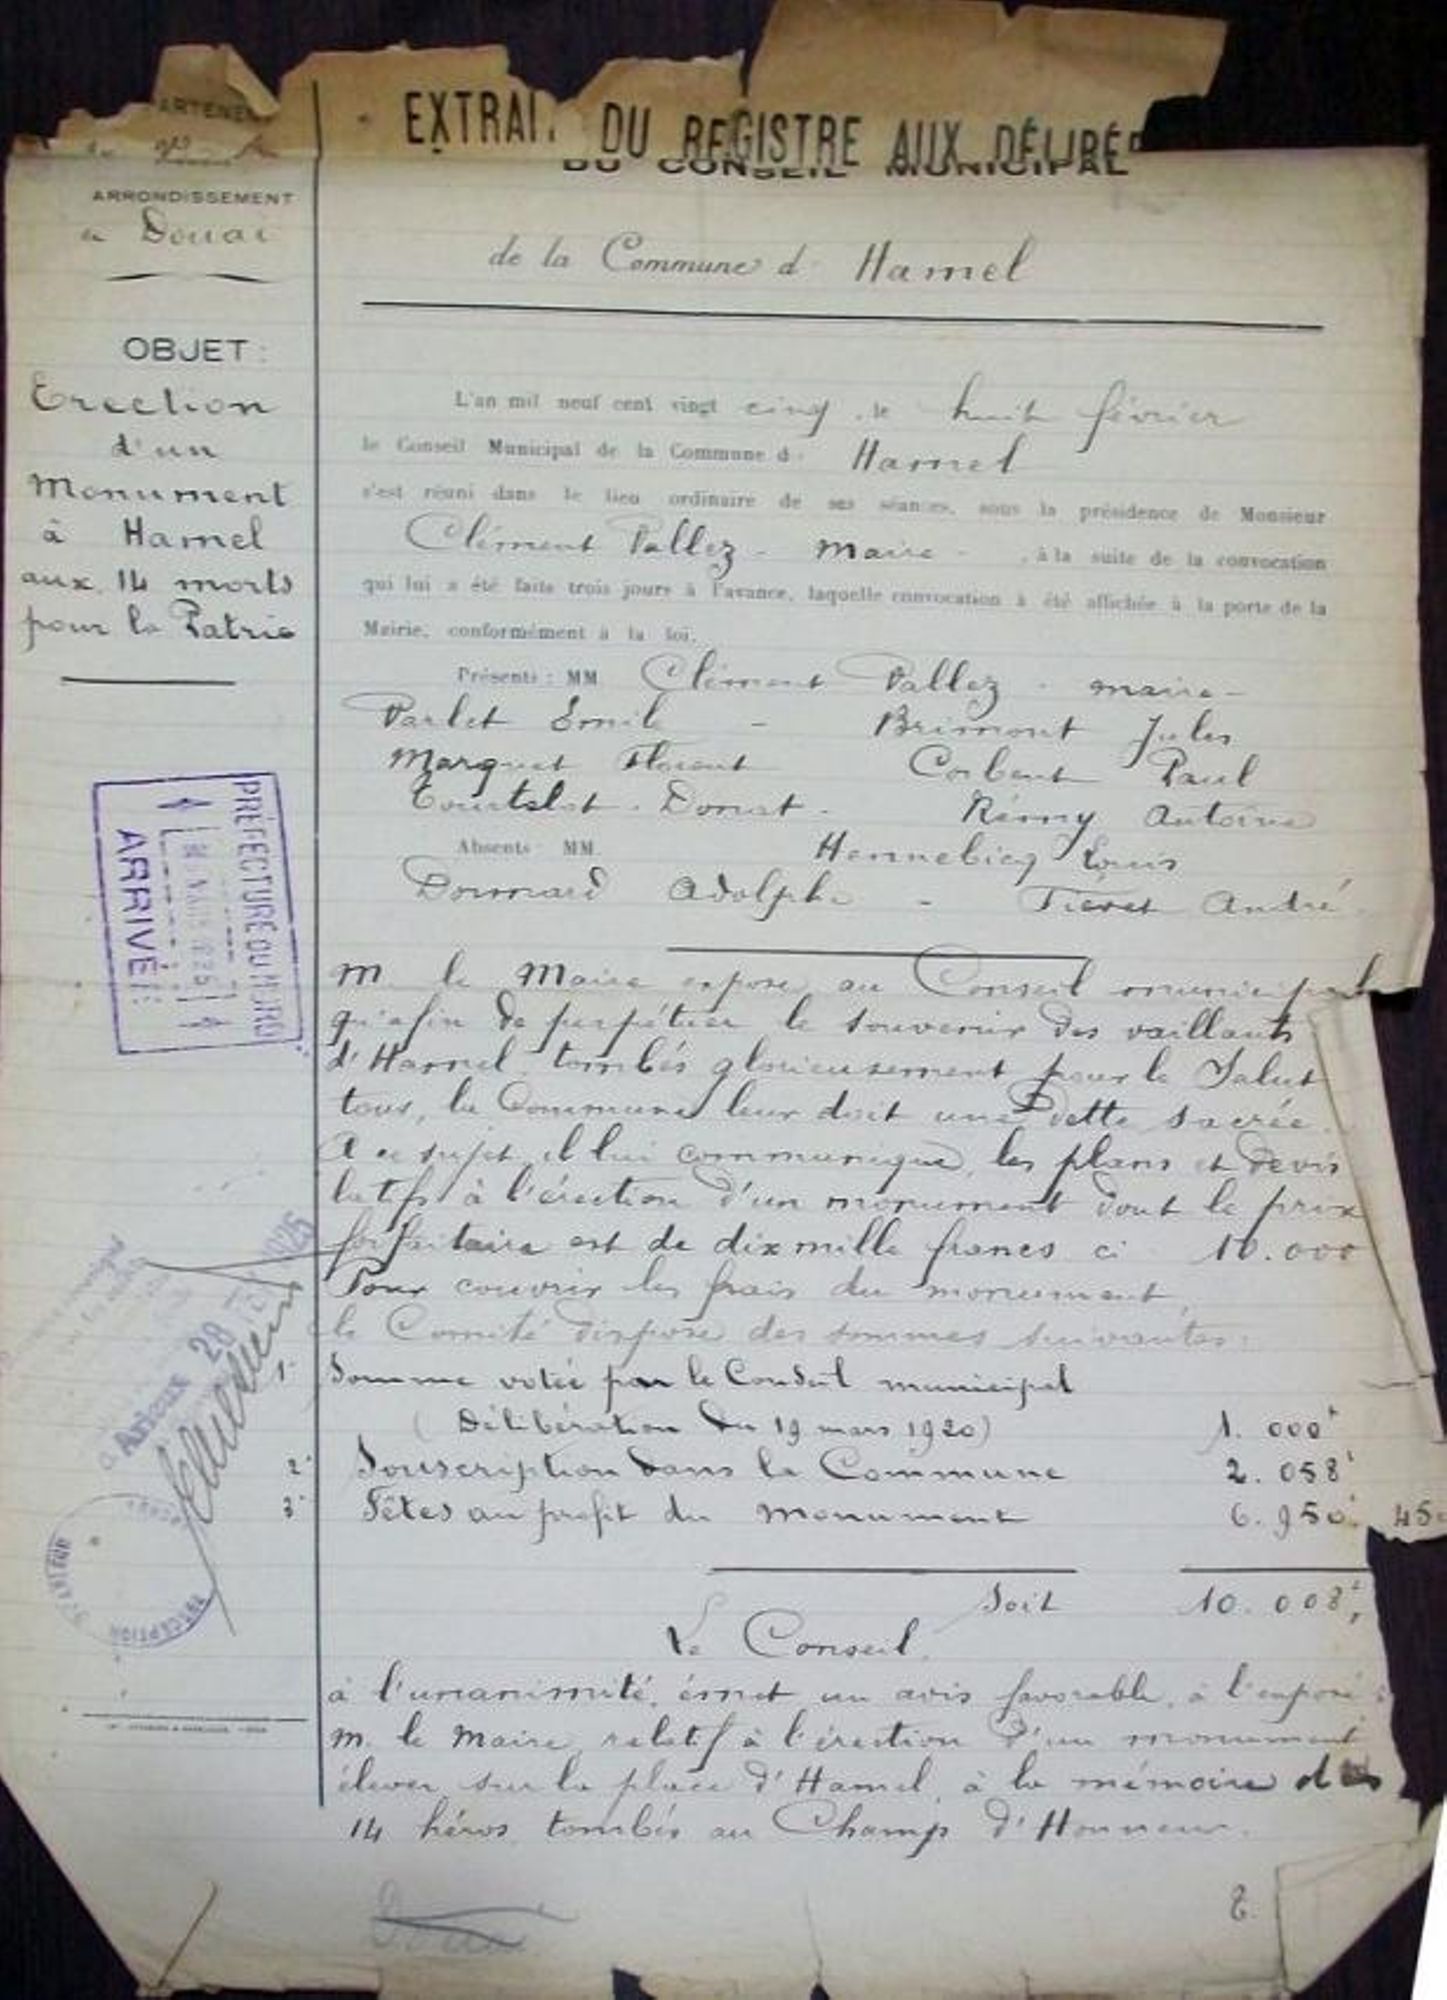 EXTRAI. DU REGISTRE AUX DÉLIBÉ
DU CONSEIL MUNICIPAL
de la Commune d Hamel
ARRONDISSEMENT
Douai
OBJET :
Erection
d'un
Monument
à Hamel
aux 14 morts
pour la Patrie
L'an mil neuf cent vingt cinq, le huit février
le Conseil Municipal de la Commune d Hamel
s'est réuni dans le lieu ordinaire de ses séances, sous la présidence de Monsieur
Clément Pallez - maire - , à la suite de la convocation
qui lui a été faite trois jours à l'avance, laquelle convocation a été affichée à la porte de la
Mairie, conformément à la loi.
Présents : MM. Clément Pallez - maire -
Parlet Emile - Brimont Jules
Marquet Florent Paul
Donat - Rémy Antoine
Absents MM. Hennebicq Louis
Adolphe - André
PRÉFECTURE DU NORD
ARRIVÉE
M. le Maire expose au Conseil municipal
qu'afin de perpétuer le souvenir des vaillants
d'Hamel tombés glorieusement pour le Salut
tous, la Commune leur doit une dette sacrée.
A ce sujet il lui communique les plans et devis
latifs à l'érection d'un monument dont le prix
forfaitaire est de dix mille francs ci 10.000
Pour couvrir les frais du monument,
le Comité dispose des sommes suivantes :
1° Somme votée par le Conseil municipal
(Délibération du 19 mars 1920) 1.000f
2° Souscription dans la Commune 2.058f
3° Fêtes au profit du monument 6.950f 45
Soit 10.008f,
Arleux 28
PERCEPTION D'ARLEUX
Le Conseil
à l'unanimité, émet un avis favorable, à l'exposé
M. le Maire relatif à l'érection d'un monument
élever sur la place d'Hamel, à la mémoire des
14 héros tombés au Champ d'Honneur.